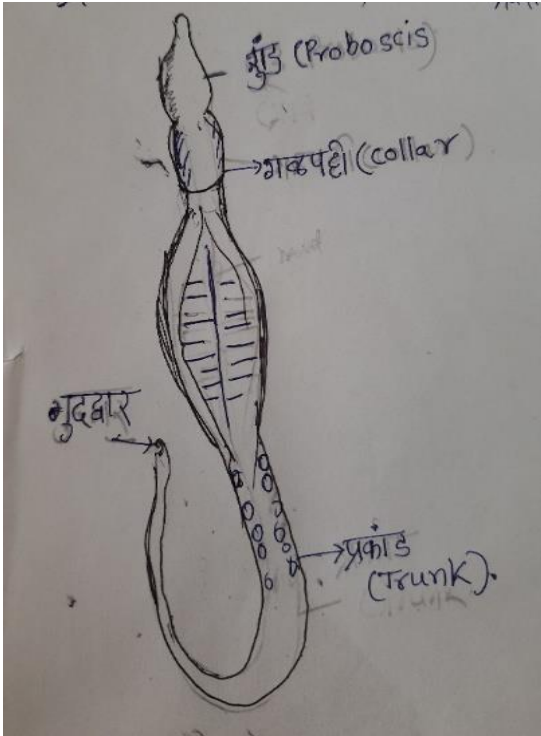 शुंड (Proboscis)
गळपट्टी (collar)
गुदद्वार
प्रकांड
(Trunk).